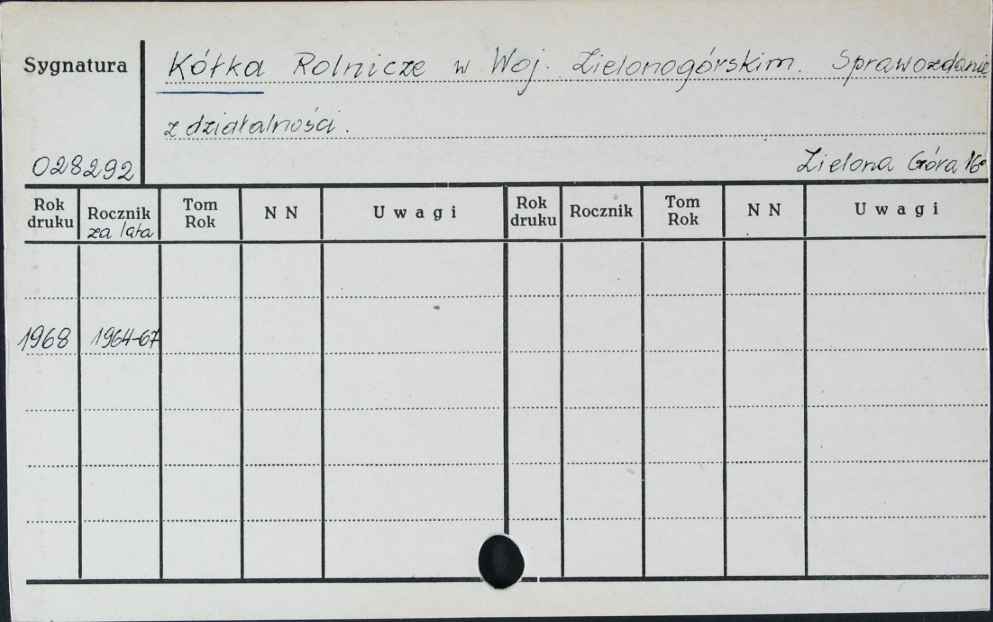 Sygnatura
Kółka Rolnicze w Woj. Zielonogórskim. Sprawozdanie
z działalności.
028292
Zielona Góra
Rok druku Rocznik za lata Tom Rok NN Uwagi Rok druku Rocznik Tom Rok NN Uwagi
1968 1964-67